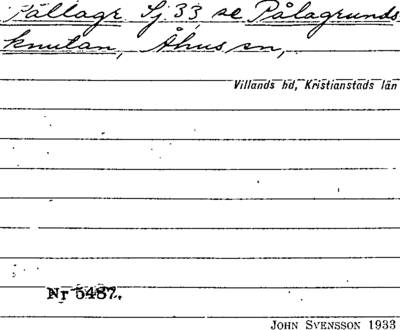 Pållagr Lj. 33 se Pålagrunds
knutan, Åhus sn,
Villands hd, Kristianstads län
Nr 5487.
JOHN SVENSSON 1933